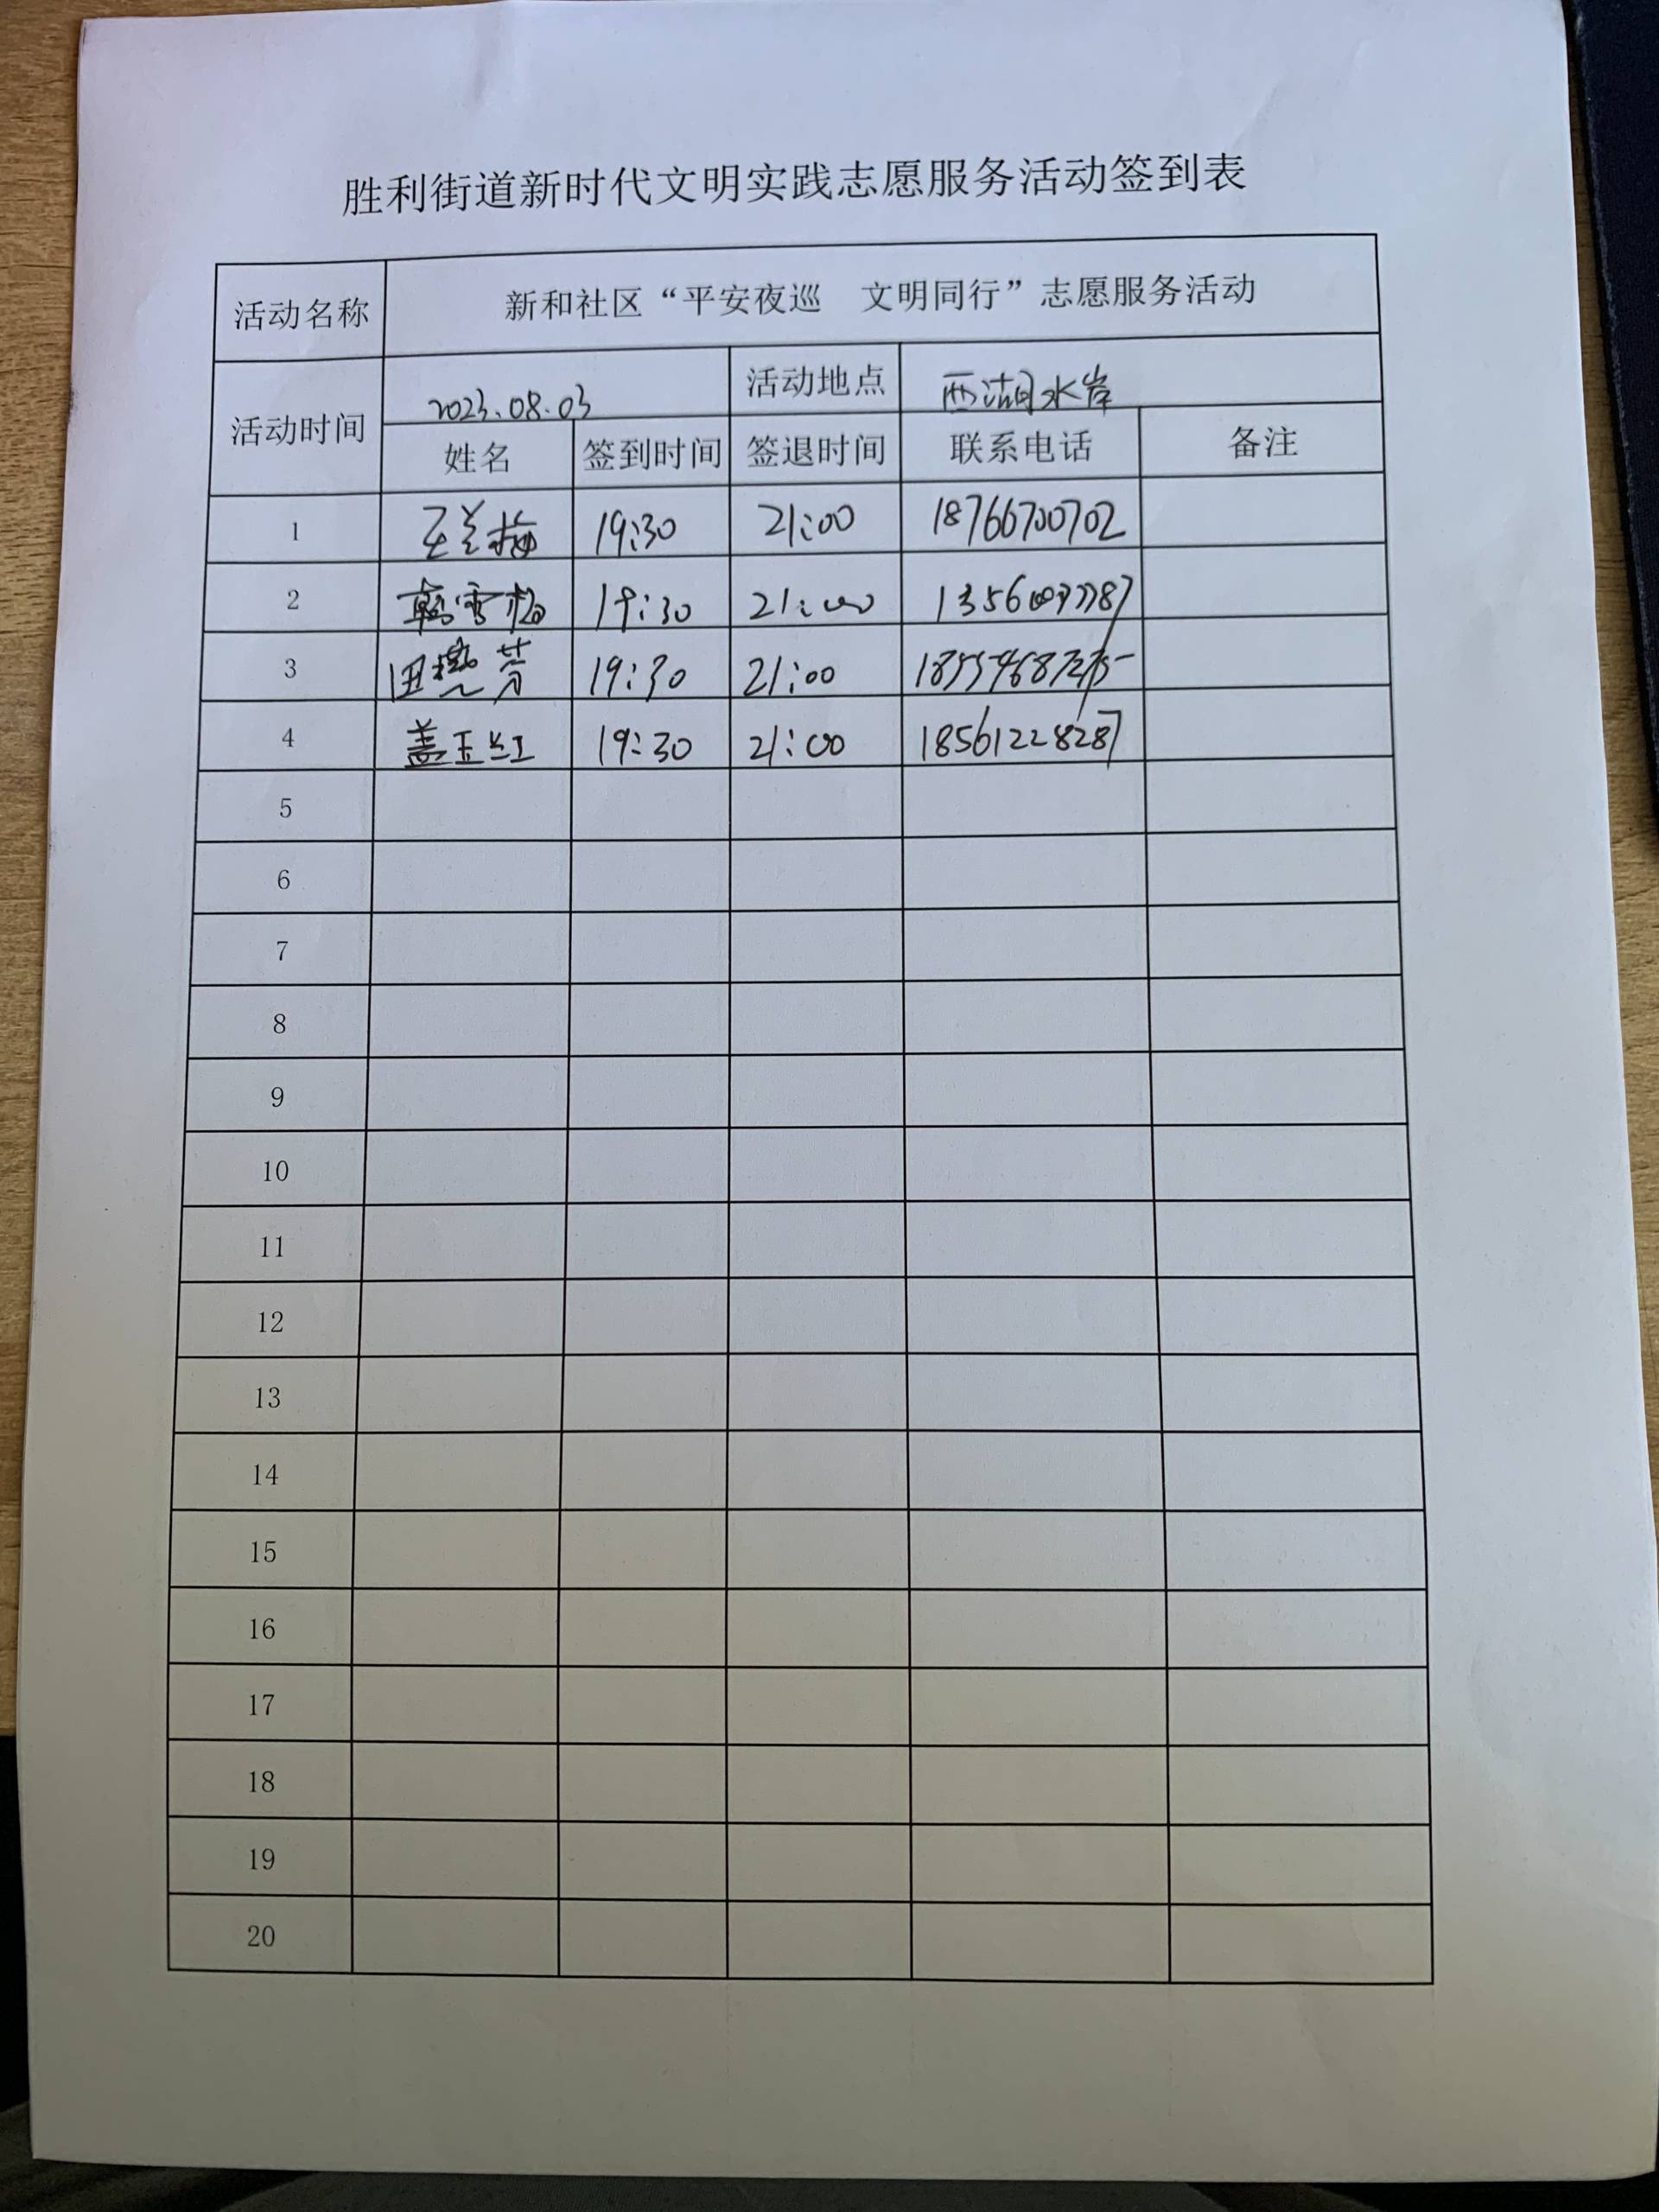 胜利街道新时代文明实践志愿服务活动签到表
活动名称 新和社区“平安夜巡 文明同行”志愿服务活动
活动时间 2023.08.03 活动地点 西湖水岸
姓名 签到时间 签退时间 联系电话 备注
1 王兰梅 19:30 21:00 18766700702
2 韩雪梅 19:30 21:00
3 田艳芳 19:30 21:00
4 盖玉红 19:30 21:00 18561228287
5
6
7
8
9
10
11
12
13
14
15
16
17
18
19
20